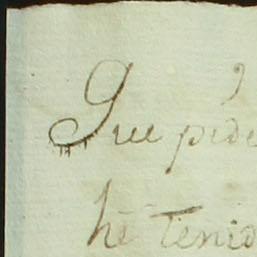 Que pide
he tenid